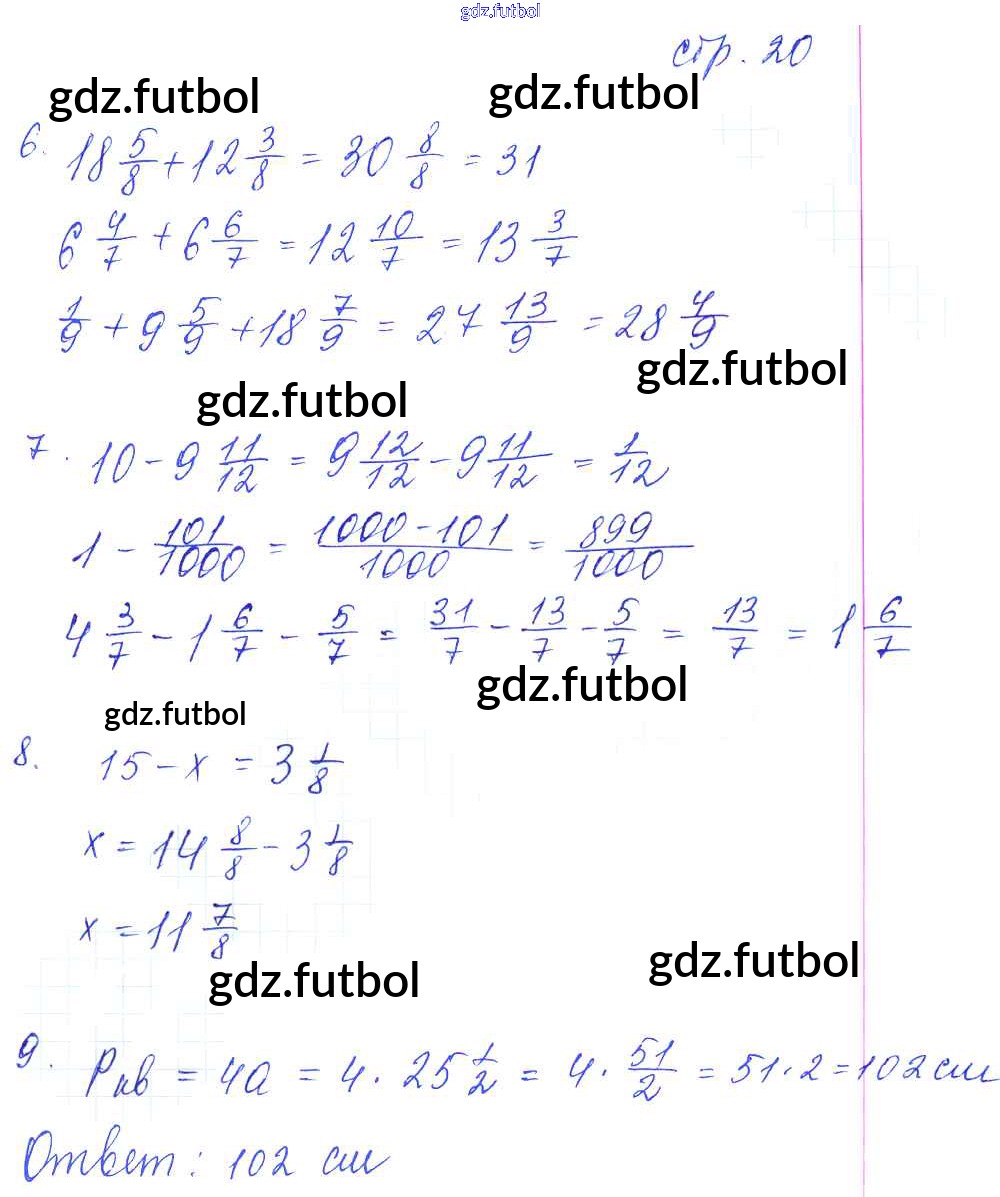 gdz.futbol
стр. 20
gdz.futbol gdz.futbol
6. 18 5/8 + 12 3/8 = 30 8/8 = 31
6 4/7 + 6 6/7 = 12 10/7 = 13 3/7
1/9 + 9 5/9 + 18 7/9 = 27 13/9 = 28 4/9
gdz.futbol
gdz.futbol
7. 10 - 9 11/12 = 9 12/12 - 9 11/12 = 1/12
1 - 101/1000 = 1000-101/1000 = 899/1000
4 3/7 - 1 6/7 - 5/7 = 31/7 - 13/7 - 5/7 = 13/7 = 1 6/7
gdz.futbol
gdz.futbol
8. 15 - x = 3 1/8
x = 14 8/8 - 3 1/8
x = 11 7/8
gdz.futbol
gdz.futbol
9. Pкв = 4a = 4 · 25 1/2 = 4 · 51/2 = 51 · 2 = 102 см
Ответ: 102 см